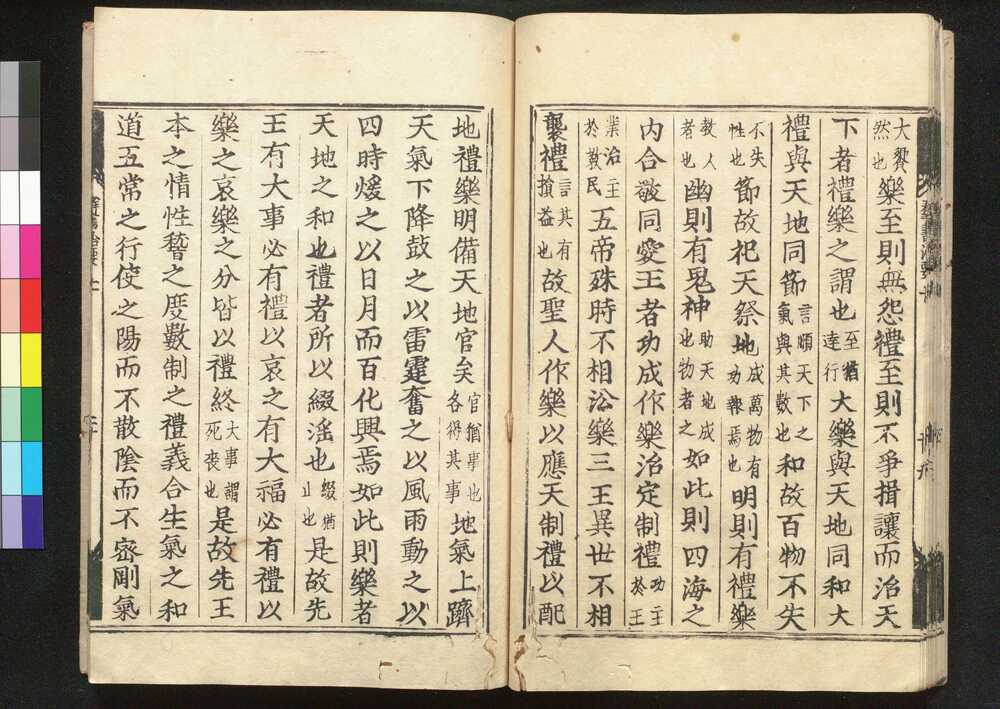 大饗然也樂至則無怨禮至則不爭揖讓而治天
下者禮樂之謂也至猶達行大樂與天地同和大
禮與天地同節言順天下之氣與其數也和故百物不失
不失性也節故祀天祭地成萬物有功報焉也明則有禮樂
教人者也幽則有鬼神助天地成物者也如此則四海之
內合敬同愛王者功成作樂治定制禮功主於王
業治主於教民五帝殊時不相沿樂三王異世不相
襲禮言其有損益也故聖人作樂以應天制禮以配
地禮樂明備天地官矣官猶事也各得其事地氣上躋
天氣下降鼓之以雷霆奮之以風雨動之以
四時煖之以日月而百化興焉如此則樂者
天地之和也禮者所以綴淫也綴猶止也是故先
王有大事必有禮以哀之有大福必有禮以
樂之哀樂之分皆以禮終大事謂死喪也是故先王
本之情性稽之度數制之禮義合生氣之和
道五常之行使之陽而不散陰而不密剛氣